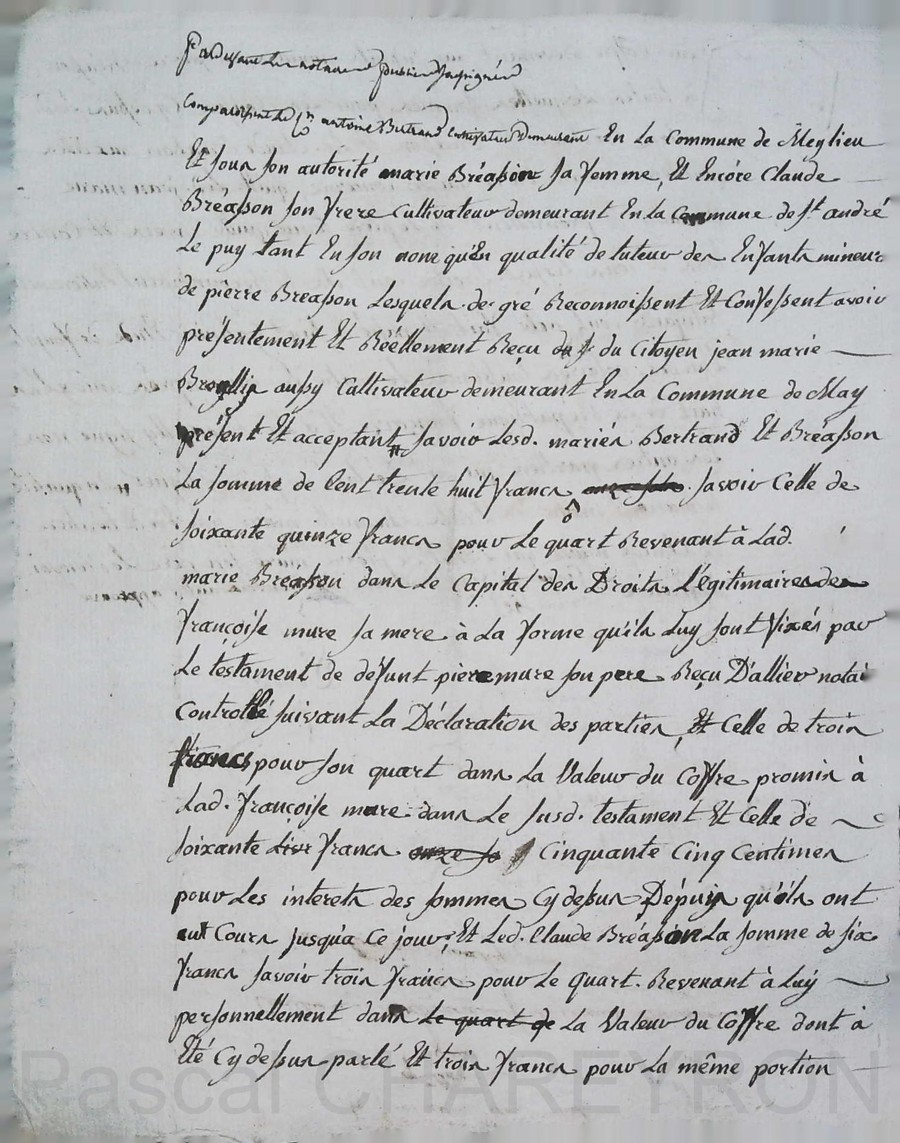 Pardevant Les notaires publics soussignés
Comparoissent Le Cen antoine Bertrand Cultivateur demeurant En La Commune de Meylieu
Et sous son autorité marie Bréasson sa femme, Et Encore Claude
Bréasson son frere Cultivateur demeurant En La Commune de St andré
Le puy tant En son nom qu'En qualité de tuteur des Enfants mineurs
de pierre Breasson Lesquels de gré Reconnoissent Et Confessent avoir
présentement Et Réellement Reçu du Citoyen jean marie
aussy Cultivateur demeurant En La Commune de May
présent Et acceptant, savoir Lesd. mariés Bertrand Et Bréasson
La somme de Cent trente huit francs onze sols savoir Celle de
soixante quinze francs pour Le quart Revenant à Lad.
marie Bréasson dans Le Capital des Droits Légitimaires des
françoise mure sa mere à La forme qu'ils Luy sont fixés par
Le testament de défunt pierre mure son pere Reçu D'allier notai
Controllé suivant La Déclaration des parties, Et Celle de trois
francs pour son quart dans La Valeur du Coffre promis à
Lad. françoise mure dans Le susd. testament Et Celle de
soixante Livr francs onze so Cinquante Cinq Centimes
pour Les interets des sommes Cy dessus Dépuis qu'ils ont
eut Cours jusqu'a Ce jour; Et Led. Claude Bréasson La somme de six
francs savoir trois francs pour Le quart Revenant à Luy
personnellement dans Le quart de La Valeur du Coffre dont à
Eté Cy dessus parlé Et trois francs pour La même portion
Pascal CHAREYRON